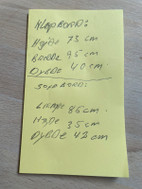 KlapBORD:
Højde 73 cm
Bredde 95 cm
Dybde 40 cm
SofaBORD:
Længde 85 cm
Højde 35 cm
Dybde 42 cm